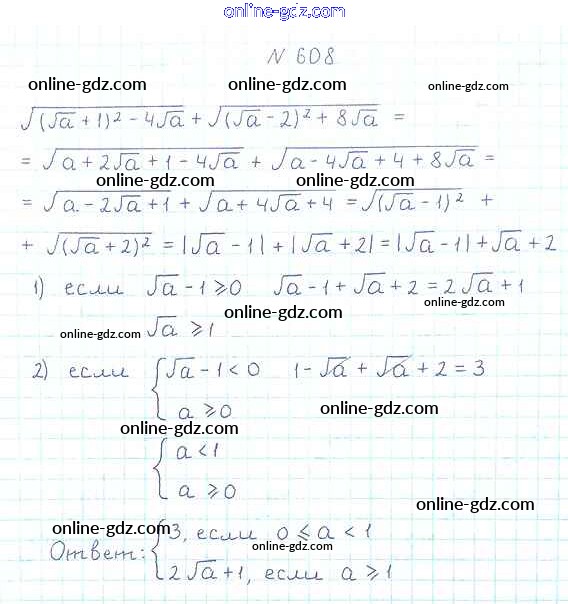 online-gdz.com
N 608
online-gdz.com online-gdz.com online-gdz.com
√((√a + 1)² - 4√a) + √((√a - 2)² + 8√a) =
= √(a + 2√a + 1 - 4√a) + √(a - 4√a + 4 + 8√a) =
online-gdz.com online-gdz.com
= √(a - 2√a + 1) + √(a + 4√a + 4) = √((√a - 1)²) +
+ √((√a + 2)²) = |√a - 1| + |√a + 2| = |√a - 1| + √a + 2
online-gdz.com online-gdz.com
1) если √a - 1 ⩾ 0 √a - 1 + √a + 2 = 2√a + 1
online-gdz.com online-gdz.com
online-gdz.com √a ⩾ 1
2) если { √a - 1 < 0 1 - √a + √a + 2 = 3
a ⩾ 0 online-gdz.com
online-gdz.com
{ a < 1
a ⩾ 0
online-gdz.com
online-gdz.com
Ответ: { 3, если 0 ⩽ a < 1
online-gdz.com
2√a + 1, если a ⩾ 1